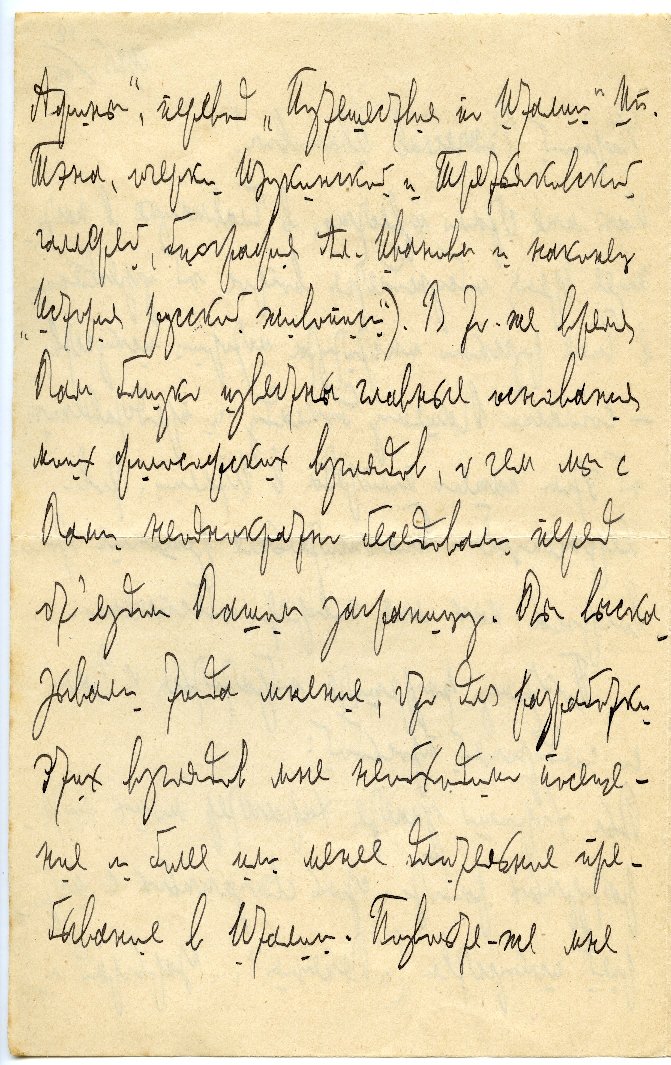 Афины", перевод „Путешествия по Италии" Ип.
Тэна, очерки Щукинской и Третьяковской
галлерей, биография Ал. Иванова и наконец
„История русской живописи"). В то-же время
Вам близко известны главные основания
моих философских взглядов, о чем мы с
Вами неоднократно беседовали перед
от'ездом Вашим заграницу. Вы выска
зывали тогда мнение, что для разработки
этих взглядов мне необходимо посеще-
ние и более или менее длительное пре-
бывание в Италии. Позвольте-же мне